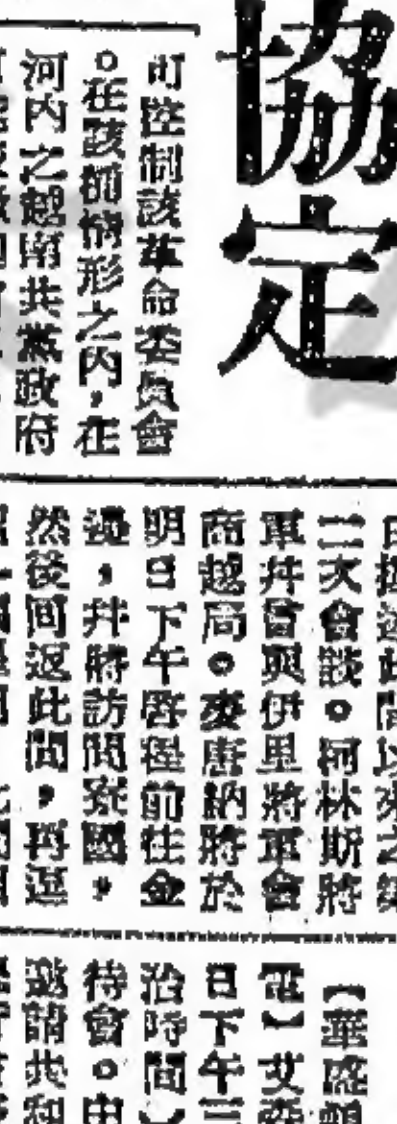 協定
可控制該革命委員會
。在該種情形之內,在
河內之越南共黨政府
二次會談。柯林斯將
軍幷曾與伊里將軍會
商越局。麥唐納將於
明日下午啓程前往金
邊,幷將訪問寮國,
然後回返此間,再逗
【華盛頓
電】艾森
日下午三
治時間】
待會。由
邀請共和